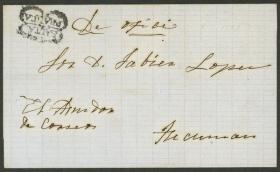 De oficio
Sor D. Fabian Lopez
El Admdor
de Correos
Tucuman